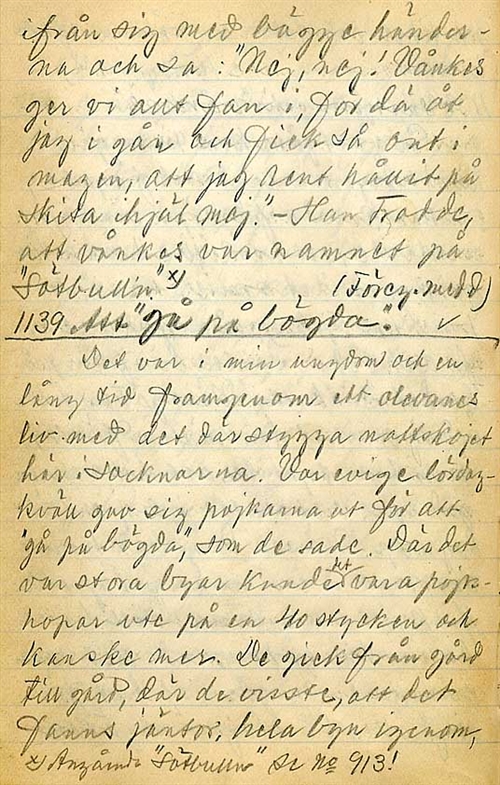 ifrån sig med bägge händer-
na och sa: "Nej, nej! Vånkes
ger vi attt fan i, för då åt
jag i går och fick så ont i
magen, att jag rent hållit på
skita ihjäl mäj." – Han trodde,
att vånkes var namnet på
"Sötbull'n." x) (Föreg. medd)
1139. Att "gå på bögda". ✓
Det var i min ungdom och en
lång tid framigenom ett olevanes
liv med det där stygga nattsköjet
här i socknarna. Var evige lördag-
kväll gav sig pojkarna ut för att
"gå på bögda", som de sade. Där det
var stora byar kunde det vara pojk-
hopar ute på en 40 stycken och
kanske mer. De gick från gård
till gård, där de visste, att det
fanns jäntor, hela byn igenom,
x) Angående "Sötbulln" Se No 913!